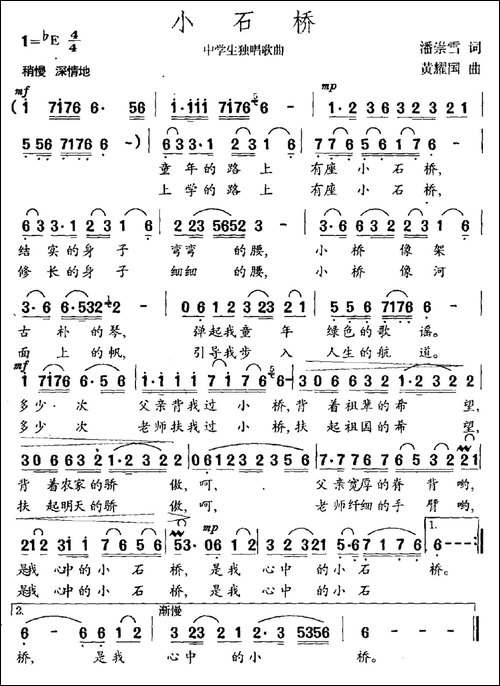 小石桥
1=♭E 4/4
中学生独唱歌曲
潘崇雪 词
黄耀国 曲
稍慢 深情地
mf
mp
(1 7176 6· 56 1·111 7176 6 1·2 3 6 3 2 3 2 3 2 1
5 56 56 7176 6 –) 6 3 3·1 2 3 1 6 7 7 6 5 6 1 7 6
童年的路上 有座小石桥,
上学的路上 有座小石桥,
6 3 3·1 2 3 1 6 2 23 5652 3 – 3 6 3 2 3 2 1 2
结实的身子 弯弯的腰, 小桥像架
修长的身子 细细的腰, 小桥像河
3·6 6·532 2 – 0 6 1 2 3 23 2 1 5 5 6 7176 6
古朴的琴, 弹起我童年 绿色的歌谣。
面上的帆, 引导我步入 人生的航道。
mf
1 7176 6·5 6 1·1 1 1 7 1 7 6 6 3·0 6 6 3 2 1·2 3 2 2
多少次 父亲背我过小桥,背着祖辈的希望,
多少次 老师扶我过小桥,扶起祖国的希望,
3 0 6 6 3 2 1·2 3 2 2 0 6 1 2 3 2 2 7·7 7 6 7 6 3 2 2 1
背着农家的骄傲,呵, 父亲宽厚的脊背哟,
扶起明天的骄傲,呵, 老师纤细的手臂哟,
mp
1.
212 3 1 1 7 6 5 6 5 3· 0 6 1 2 3 2 3 2 1 5·6 7 1 7 6 6 –
是我心中的小石桥,是我心中的小石桥。
是我心中的小石桥,是我心中的小石
2.
渐慢
6 – 6 6 1 2 3 23 2 1 2·3 5356 6 – –
桥, 是我心中的小桥。